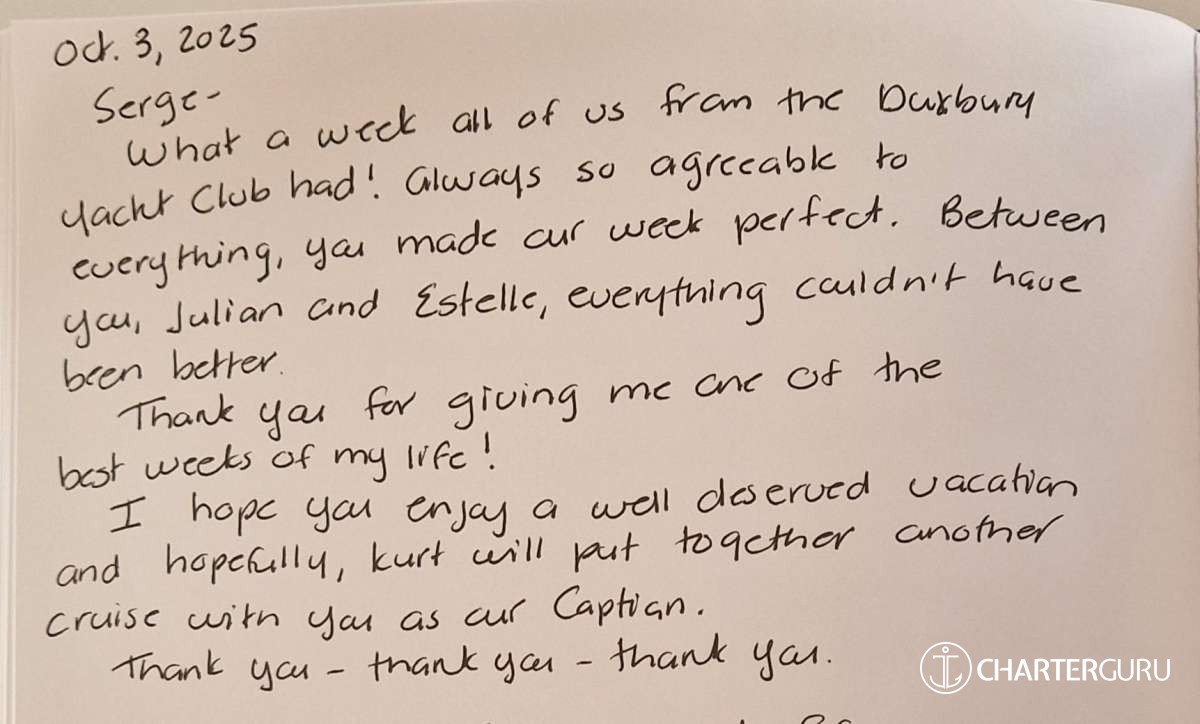 Oct. 3, 2025
Serge-
What a week all of us from the Duxbury
Yacht Club had! Always so agreeable to
everything, you made our week perfect. Between
you, Julian and Estelle, everything couldn't have
been better.
Thank you for giving me one of the
best weeks of my life!
I hope you enjoy a well deserved vacation
and hopefully, Kurt will put together another
cruise with you as our Captian.
Thank you - thank you - thank you.
CHARTERGURU